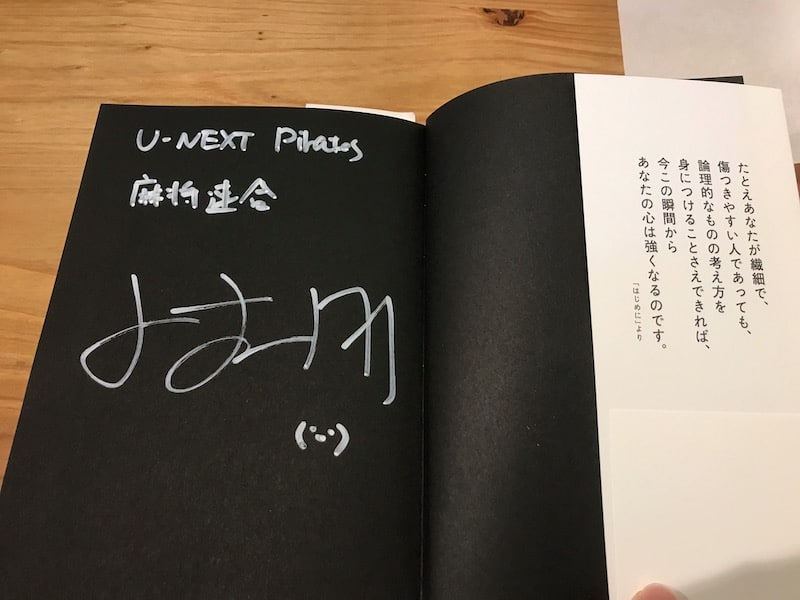 U-NEXT Pirates
麻将連合
たとえあなたが繊細で、
傷つきやすい人であっても、
論理的なものの考え方を
身につけることさえできれば、
今この瞬間から
あなたの心は強くなるのです。
「はじめに」より